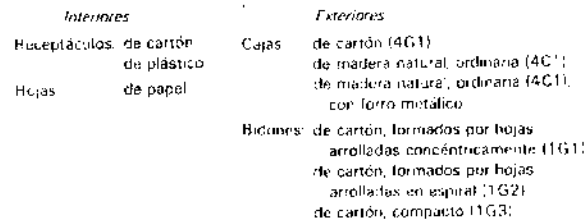 Interiores
Receptáculos: de cartón
de plástico
Hojas de papel
Exteriores
Cajas de cartón (4G1)
de madera natural, ordinaria (4C1)
de madera natural, ordinaria (4C1), con forro metálico
Bidones: de cartón, formados por hojas
arrolladas concéntricamente (1G1)
de cartón, formados por hojas
arrolladas en espiral (1G2)
de cartón, compacto (1G3)